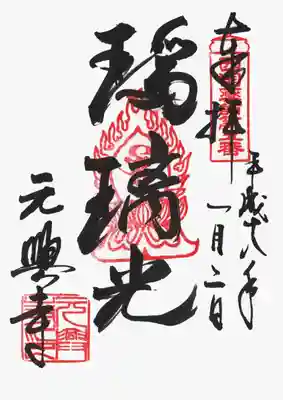 奉拝
平成廿八年
一月二日
瑠璃光
元興寺